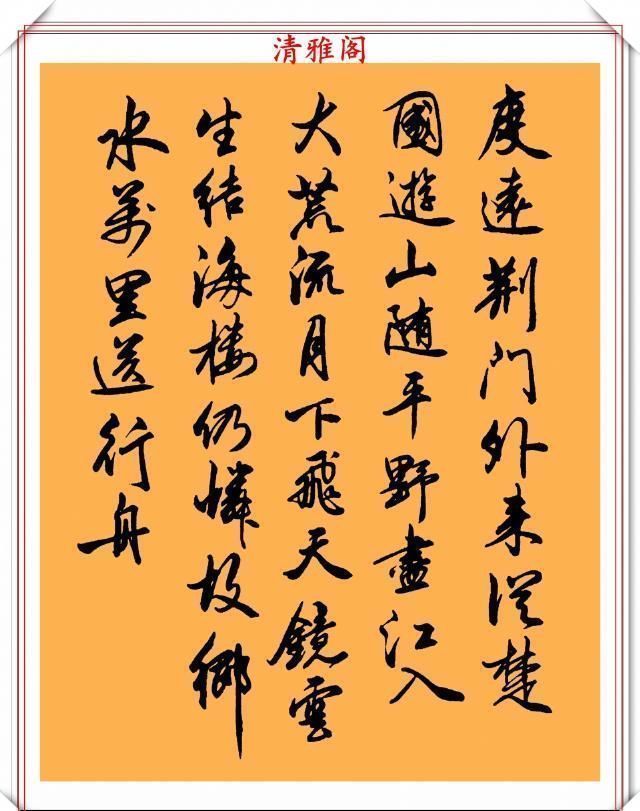 清雅阁
度遠荆门外来従楚
國遊山随平野盡江入
大荒流月下飛天鏡雲
生结海楼仍憐故鄉
水萬里送行舟